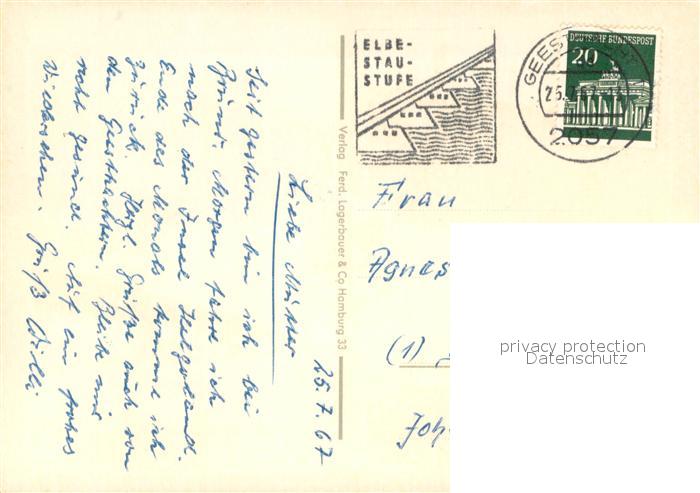 25.7.67
Liebe Mutter
Seit gestern bin ich bei
Morgen fahre ich
nach der Insel Helgoland.
Ende des Monats komme ich
zurück. Herzl. Grüße auch von
den Geesthachtern. Bleibe mir
recht gesund. Auf ein frohes
Wiedersehen. Gruß Willi
Verlag Ferd. Lagerbauer & Co Hamburg 33
ELBE-
STAU-
STUFE
GEEST
25.7.
2057
DEUTSCHE BUNDESPOST
20
Frau
Agnes
(1)
Joh
privacy protection
Datenschutz